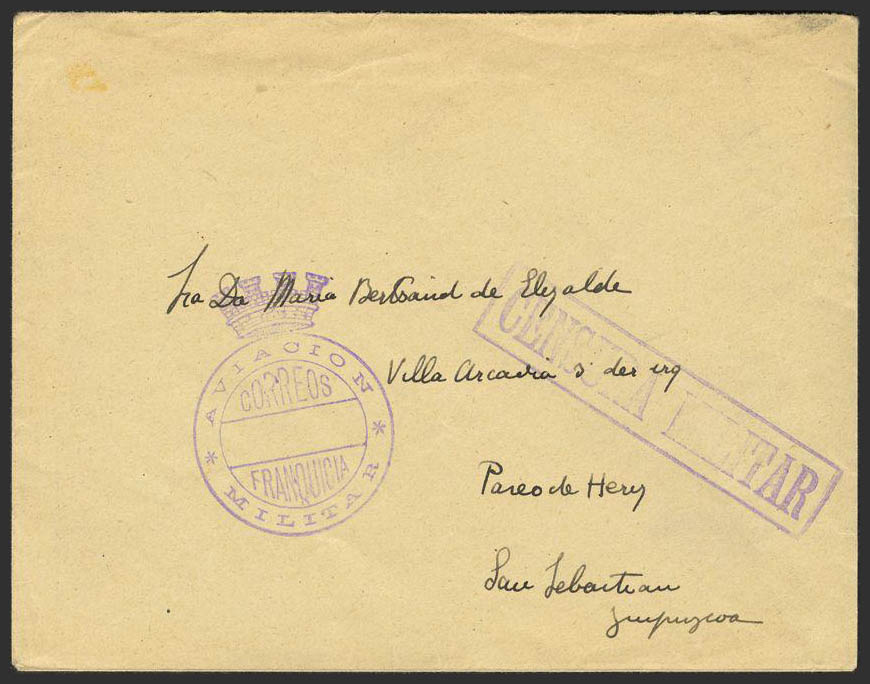 Sra Da Maria Bertrand de Elyzalde
Villa Arcadia 3º der
Paseo de Heriz
San Sebastian
Guipuzcoa
AVIACION
MILITAR
CORREOS
FRANQUICIA
CENSURA MILITAR